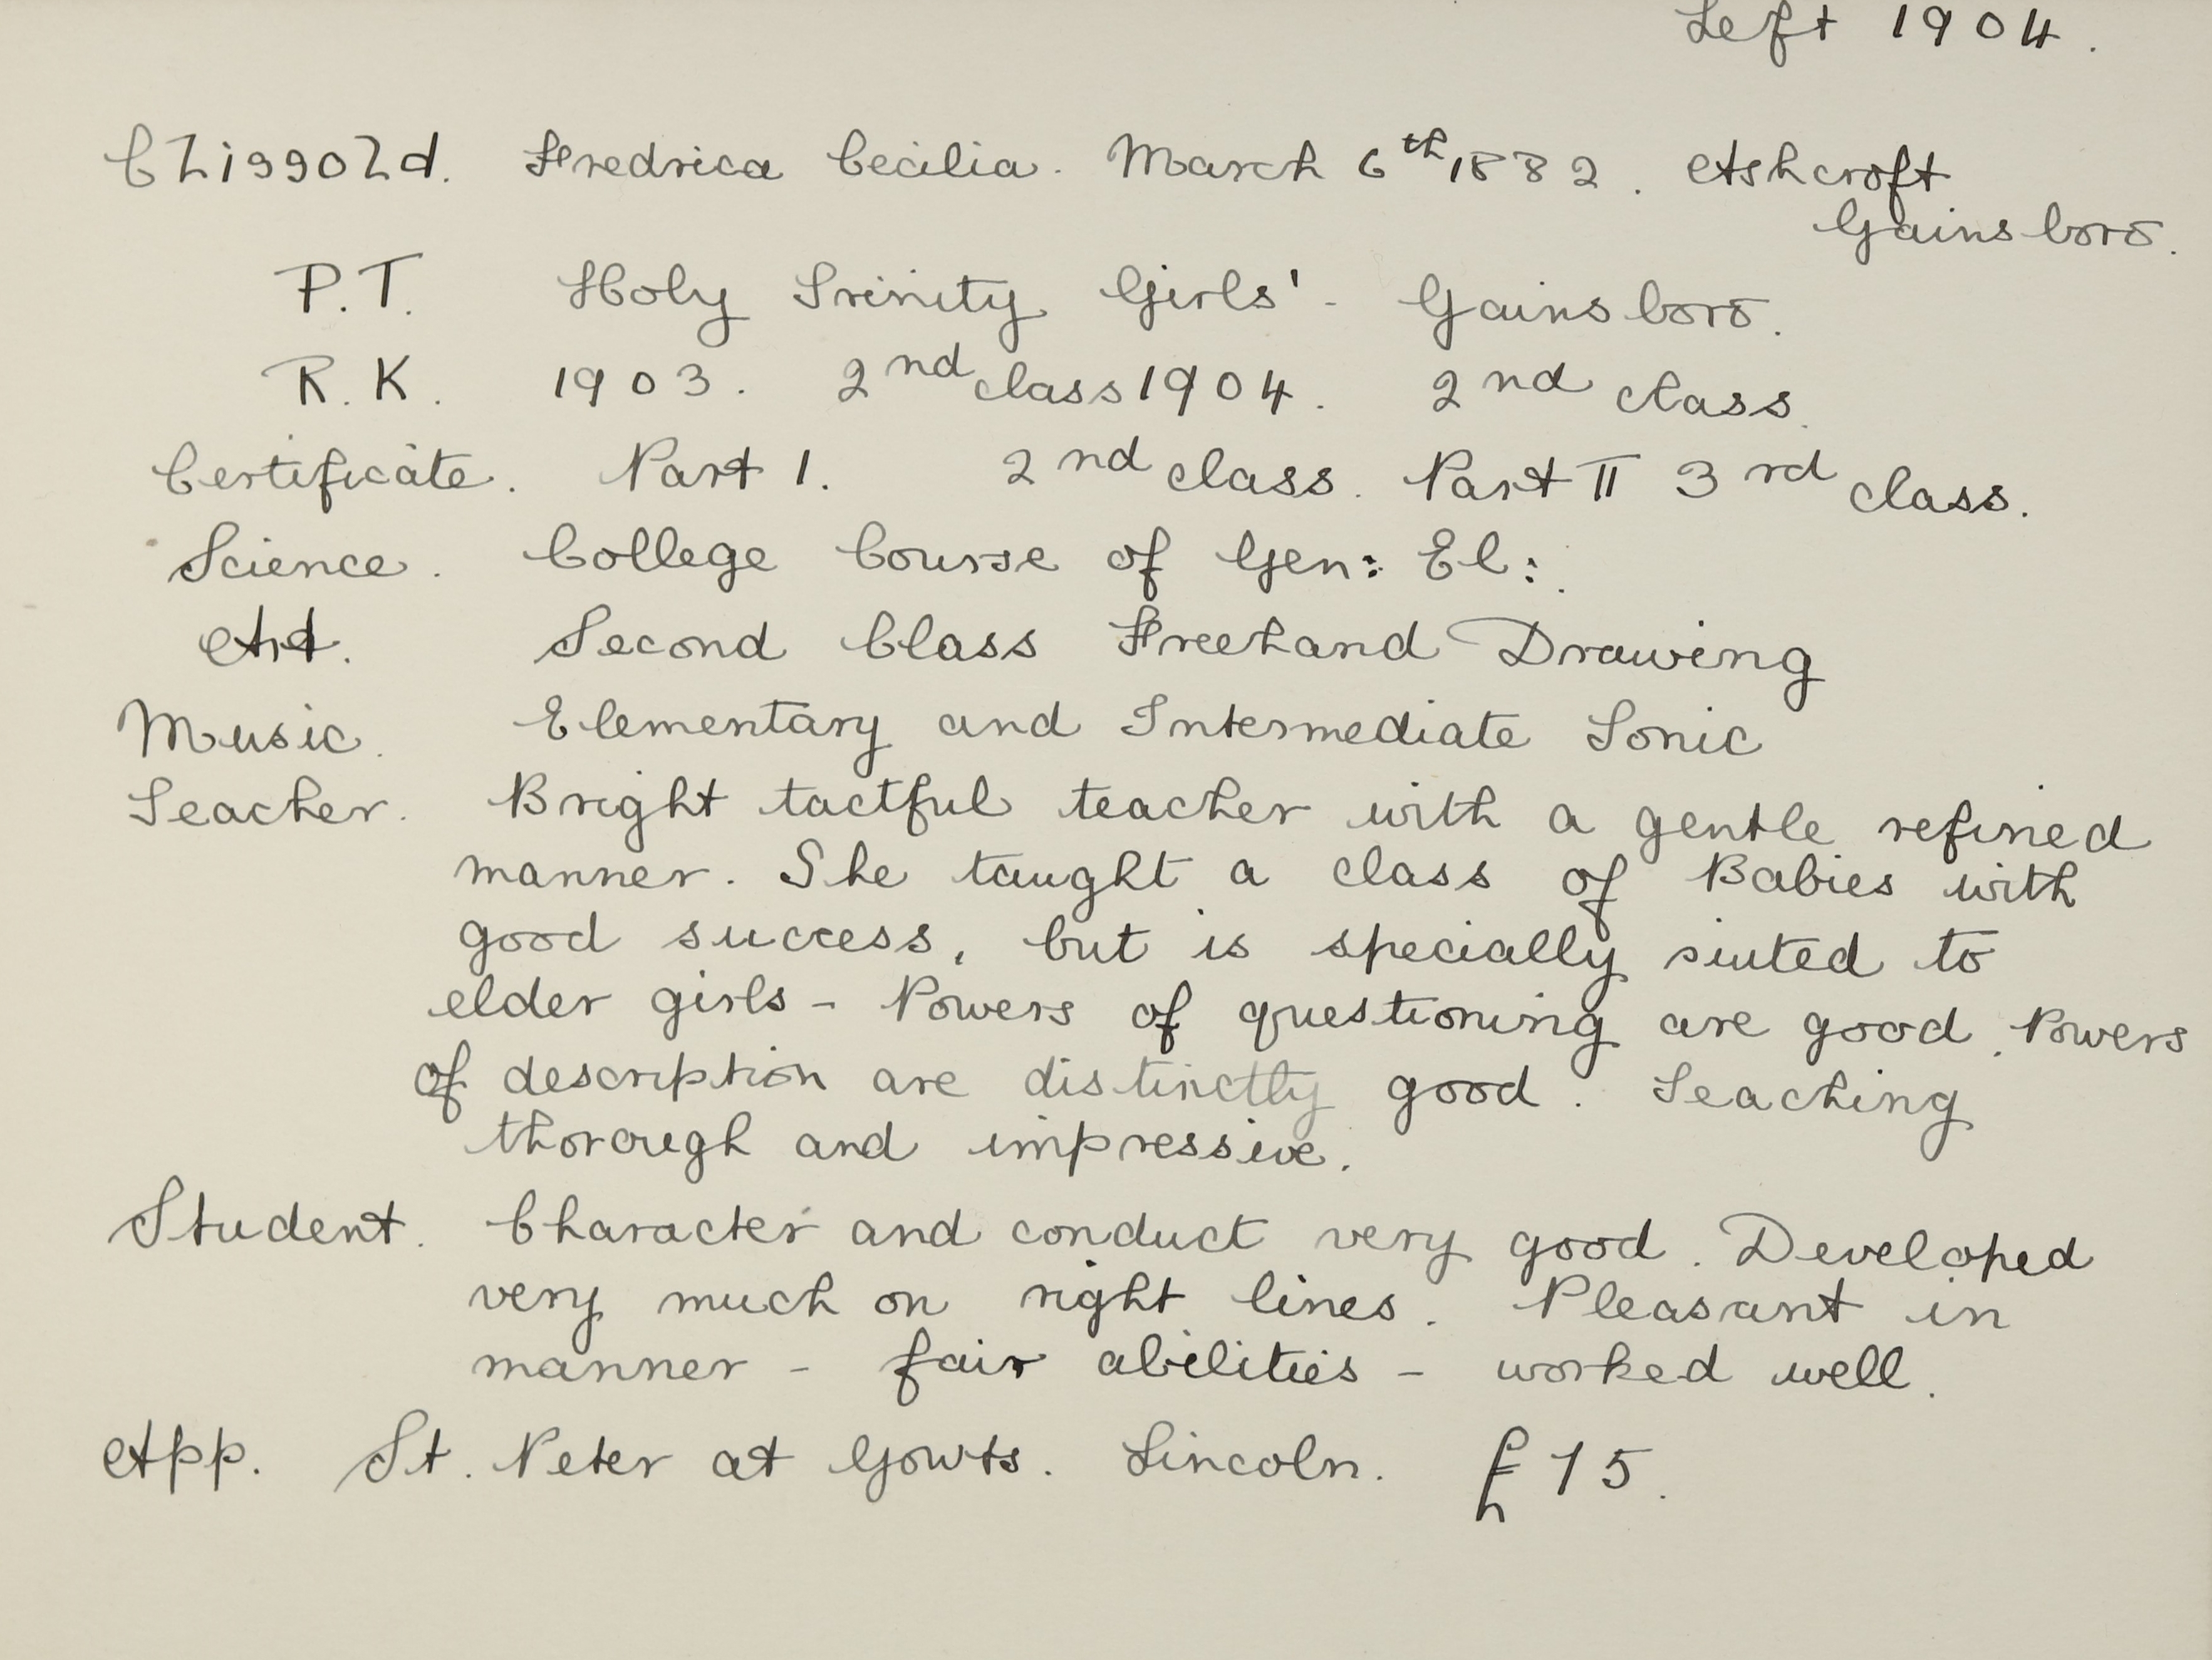 Left 1904.
Clissold. Fredrica Cecilia. March 6th 1882. Ashcroft
Gainsboro.
P.T. Holy Trinity Girls' - Gainsboro.
R.K. 1903. 2nd class 1904. 2nd class.
Certificate. Part 1. 2nd class. Part II 3rd class.
Science. College Course of Gen: El:.
Art. Second Class Freehand Drawing
Music. Elementary and Intermediate Tonic
Teacher. Bright tactful teacher with a gentle refined
manner. She taught a class of Babies with
good success, but is specially suited to
elder girls - Powers of questioning are good. Powers
of description are distinctly good. Teaching
thorough and impressive.
Student. Character and conduct very good. Developed
very much on right lines. Pleasant in
manner - fair abilities - worked well.
App. St. Peter at Gowts. Lincoln. £75.